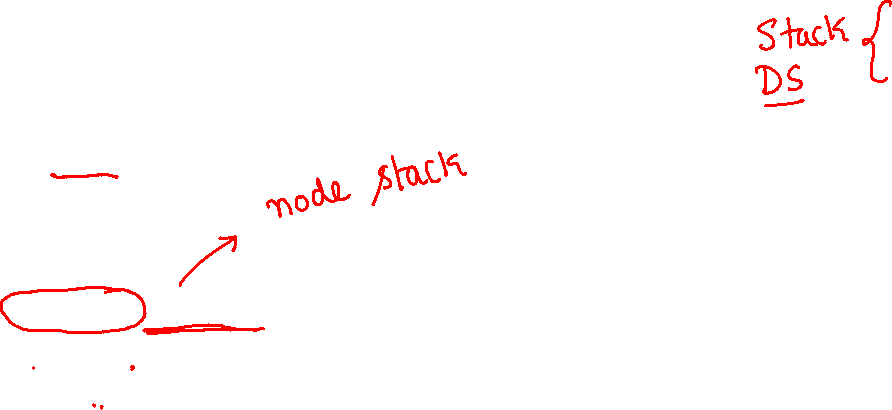 Stack {
DS
node stack